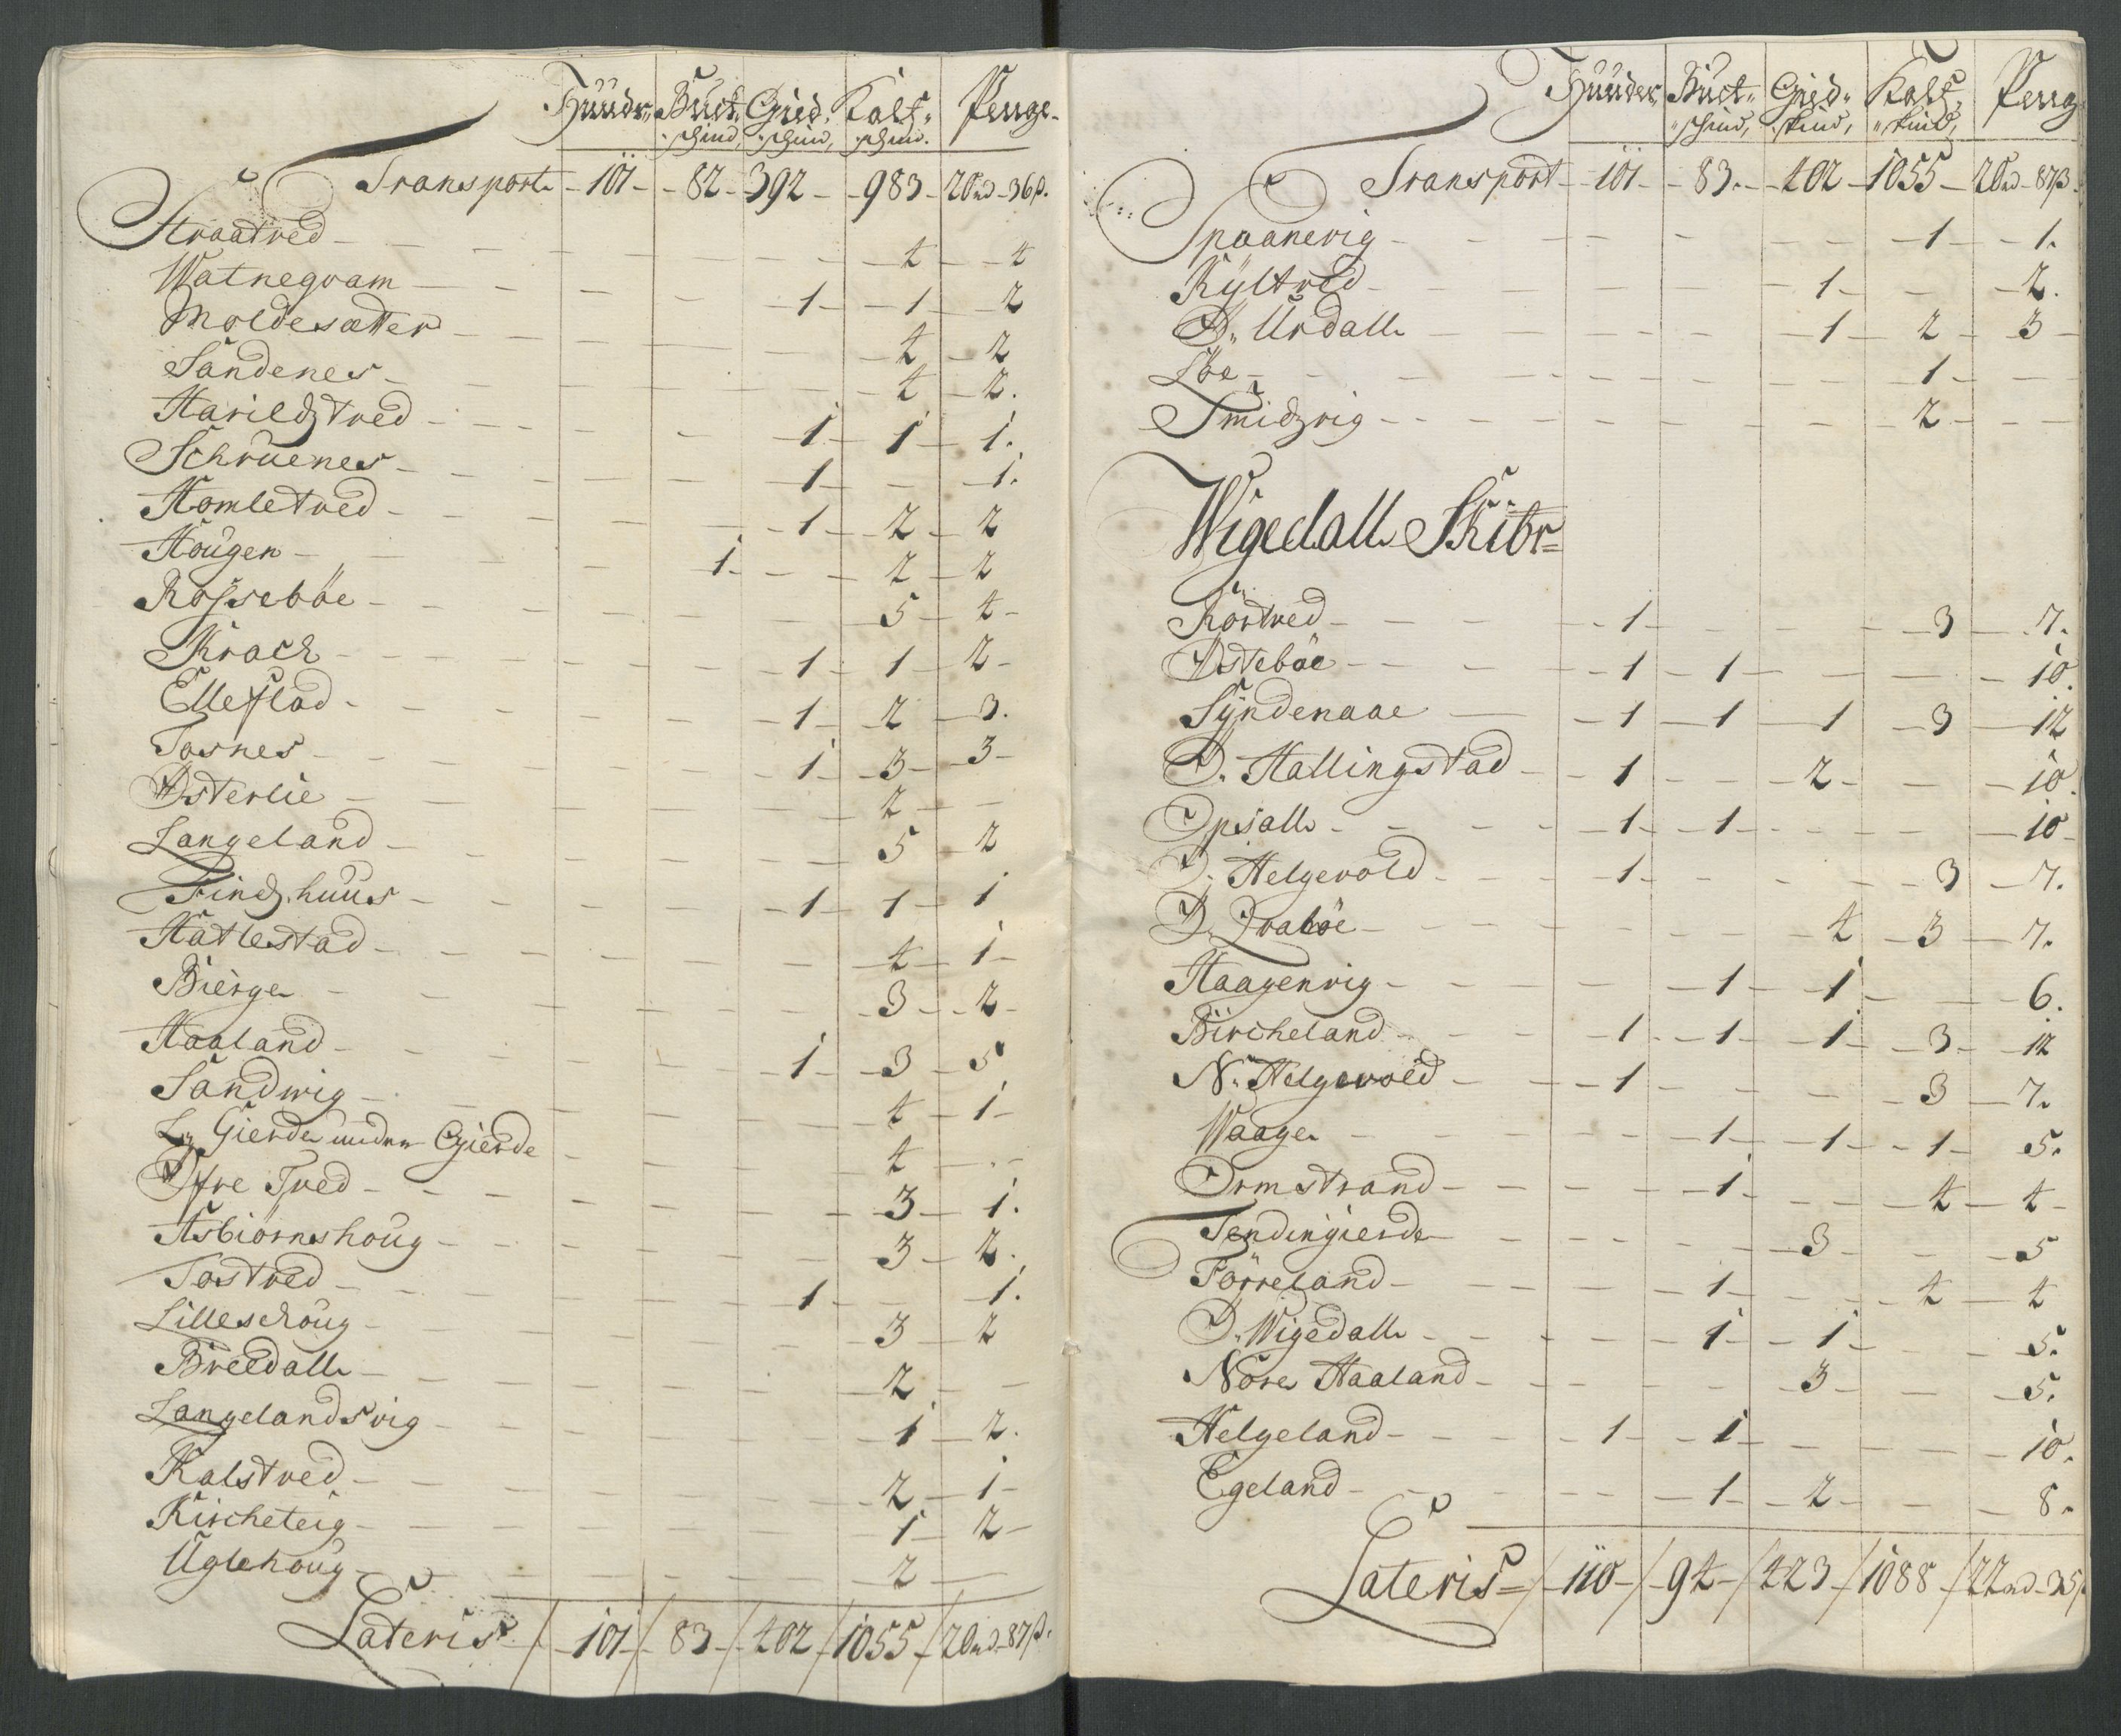 Huuder, Buck, Gied, Kalf, Penge
schind, schind, schind.
Transport 101 82 392 983 20 rd 36 ß.
Straatved 4 4
Watnegvam 1 1 2
Moldesætter 4 2
Sandenes 4 2.
Harildztved 1 1 1.
Schruenes 1 1.
Homletved 1 2 2
Hougen 1 2 2
Rossebøe 5 4
Krack 1 1 2
Ellefstad 1 2 3.
Tosnes 1 3 3
Østerlie 2
Langeland 5 2
Findzhuus 1 1 1
Hatlestad 4 1
Bierge 3 2
Haaland 1 3 5
Sandwig 4 1
L. Gierde under Gierde 4
Øfre Tved 3 1.
Asbiørnshoug 3 2.
Tostved 1 1.
Lilleschoug 3 2
Breedall 2
Langelandsvig 1 2.
Kalstved 2 1
Kircheteig 1 2
Uglehoug 2
Lateris 101 83 402 1055 20 rd 87 ß.
Huuder, Buck, Gied, Kalf, Peng
schind, skind, skind,
Transport 101 83 402 1055 20 rd 87 ß.
Spaanevig 1 1.
Kyltved 1 2.
Ø. Urdall 1 2 3
Løe 1
Smidzvig 2
Wigedall Skibr
Rørtved 1 3 7.
Østebøe 1 1 10.
Syndenaae 1 1 1 3 12
Ø. Hallingstad 1 2 10.
Opsall 1 1 10
Ø. Helgevold 1 3 7.
Ø. Qvabøe 4 3 7.
Haagenvig 1 1 6.
Bircheland 1 1 1 3 12
N. Helgevold 1 3 7.
Waage 1 1 1 5.
Ormstrand 1 4 4
Tendingierde 3 5
Førreland 1 4 4
Ø. Wigedall 1 1 5.
Nore Haaland 3 5.
Helgeland 1 1 10.
Egeland 1 2 8.
Lateris 110 94 423 1088 22 rd 35 ß